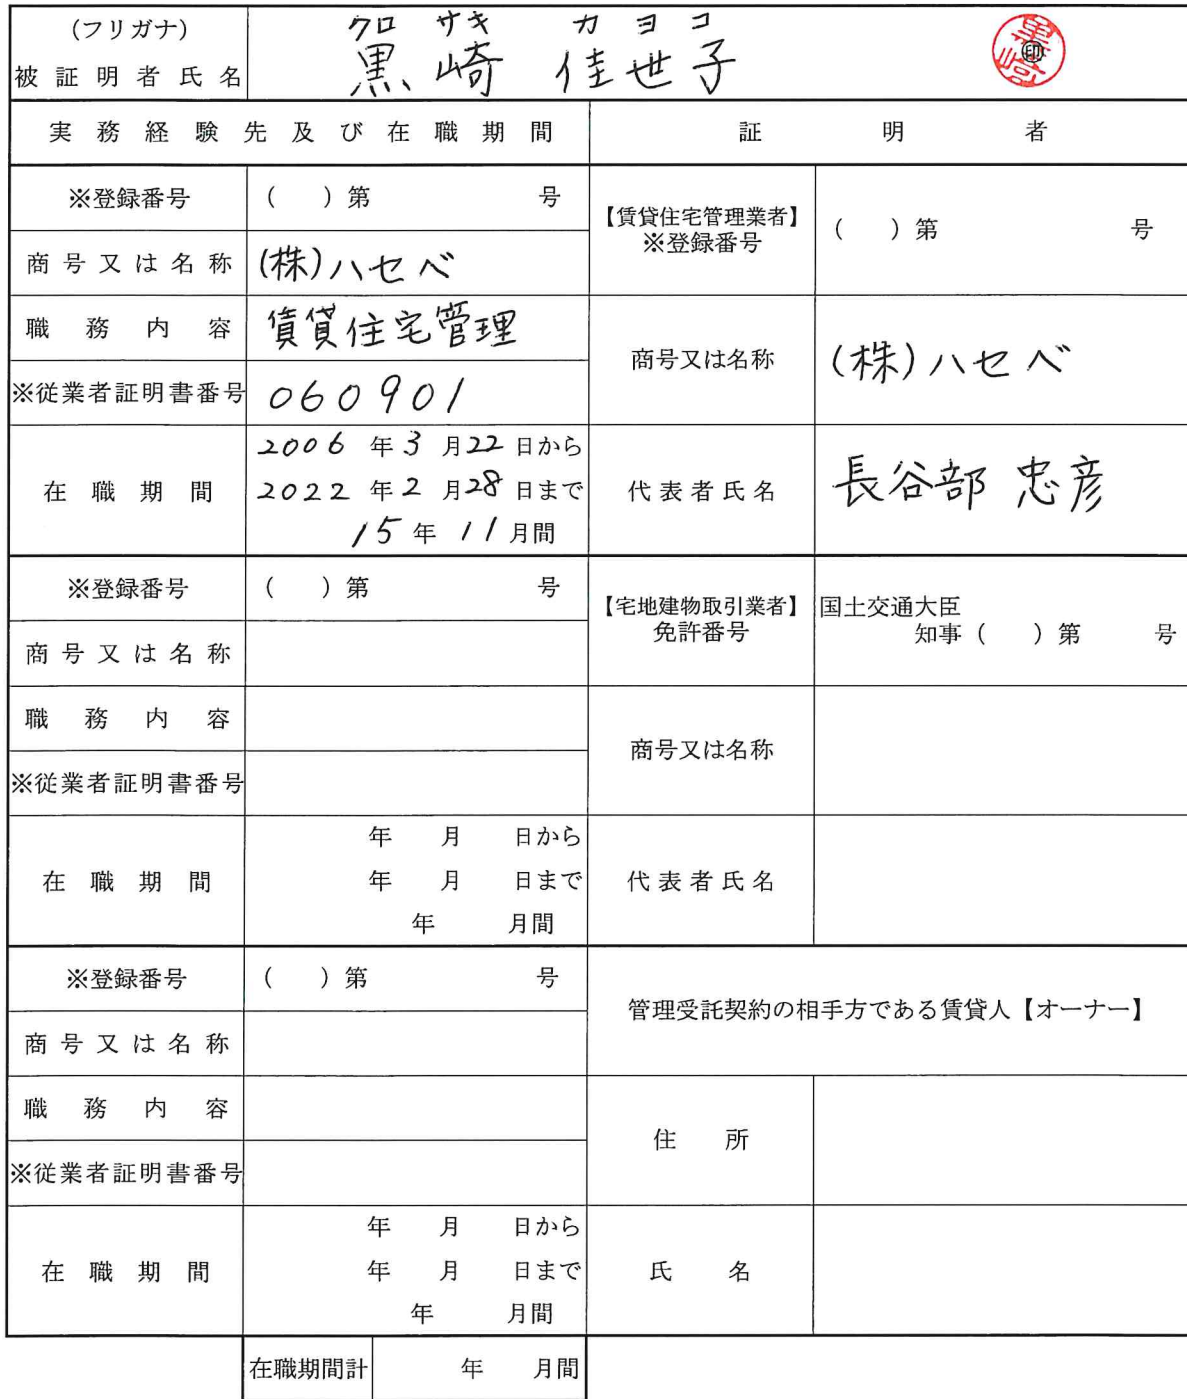 (フリガナ) クロ サキ カ ヨ コ
被証明者氏名 黒崎 佳世子 ㊞
実務経験先及び在職期間 証明者
※登録番号 ( )第 号
【賃貸住宅管理業者】
※登録番号 ( )第 号
商号又は名称 (株)ハセベ
職務内容 賃貸住宅管理
商号又は名称 (株)ハセベ
※従業者証明書番号 060901
在職期間
2006年3月22日から
2022年2月28日まで
15年11月間
代表者氏名 長谷部 忠彦
※登録番号 ( )第 号
【宅地建物取引業者】
免許番号
国土交通大臣
知事( )第 号
商号又は名称
職務内容
商号又は名称
※従業者証明書番号
在職期間
年 月 日から
年 月 日まで
年 月間
代表者氏名
※登録番号 ( )第 号
管理受託契約の相手方である賃貸人【オーナー】
商号又は名称
職務内容
住所
※従業者証明書番号
在職期間
年 月 日から
年 月 日まで
年 月間
氏名
在職期間計 年 月間